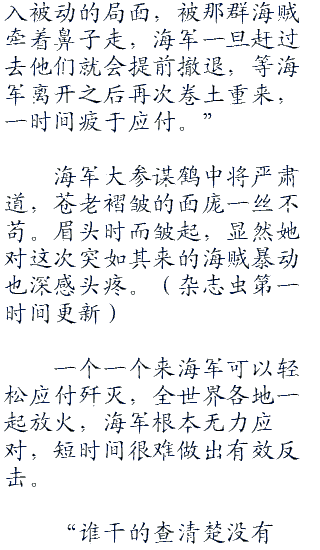 入被动的局面，被那群海贼
牵着鼻子走，海军一旦赶过
去他们就会提前撤退，等海
军离开之后再次卷土重来，
一时间疲于应付。”
海军大参谋鹤中将严肃
道，苍老褶皱的面庞一丝不
苟。眉头时而皱起，显然她
对这次突如其来的海贼暴动
也深感头疼。（杂志虫第一
时间更新）
一个一个来海军可以轻
松应付歼灭，全世界各地一
起放火，海军根本无力应
对，短时间很难做出有效反
击。
“谁干的查清楚没有